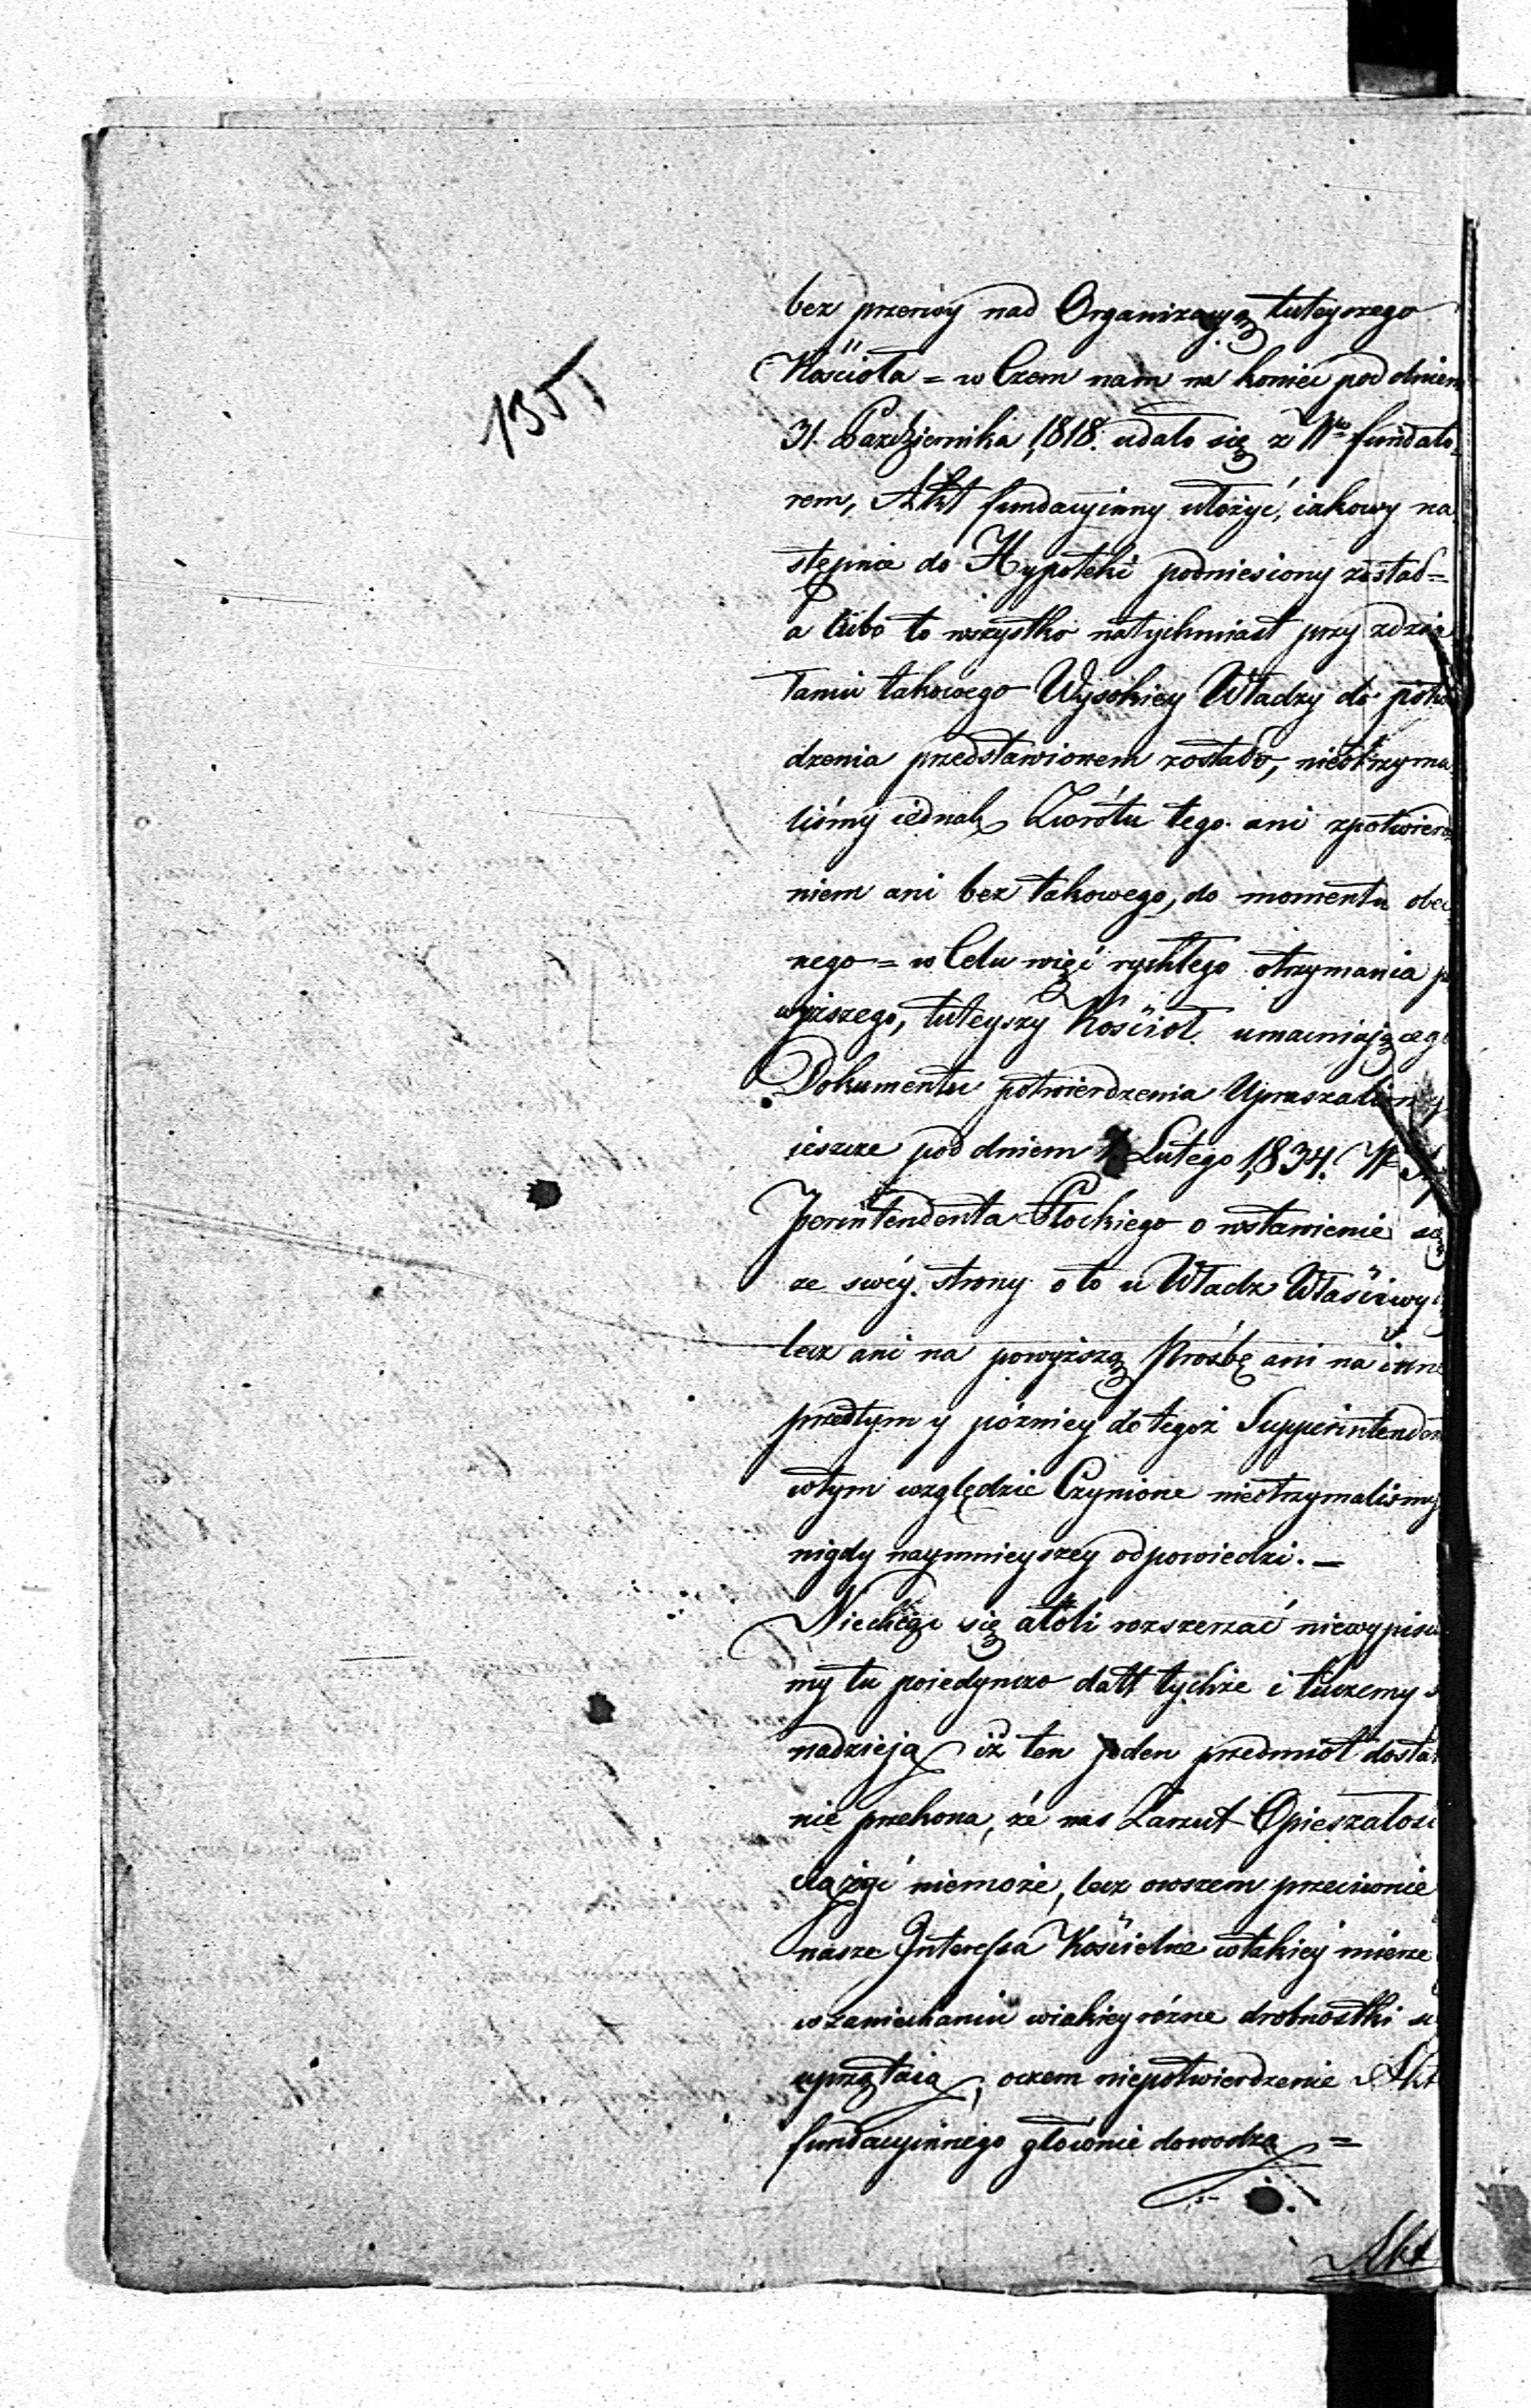 bez przerwy nad Organizacyą tuteyszego
1355
Kościoła = w Czem nam na koniec pod dniem
31. Października 1818. udało się z fundato-
rem, Akt fundacyinny ułożyć, iakowy na
stępnie do Hypoteki podniesiony został =
a lubo to wszystko natychmiast przy zdzia
łaniu takowego Wysokiey Władzy do potw
dzenia przedstawionem zostało, nieotrzyma
liśmy iednak Zwrótu tego ani zpotwierdz
niem ani bez takowego, do momentu obec
nego = w Celu więć rychłego otrzymania p
wyższego, tuteyszy Kościoł umacniaiącego
Dokumentu potwierdzenia Upraszaliśmy
ieszcze pod dniem Lutego 1834.
perintendenta Płockiego o wstawienie się
ze swéy strony o to u Władz Właściwych
lecz ani na powyższą Prośbę ani na inne
przedtym y pózniey do tegoż Supperintendent
wtym względzie Czynione nieotrzymalismy
nigdy naymnieyszey odpowiedzi. —
Niechcąc się atoli rozszerzać niewypisu
my tu poiedynczo datt tychże i tuszemy s
nadzieją iż ten jeden przedmiot dostat
nie przekona, że nas Zarzut Opieszałośc
ciążyć niemoże, lecz owszem przeciwnie
nasze Interessa Kościelne wtakiey mierze
wzaniechaniu wiakiey rózne drobnostki
uprzątaią, oczem niepotwierdzenie Akt
fundacyinnego głównie dowodzą =
Akt